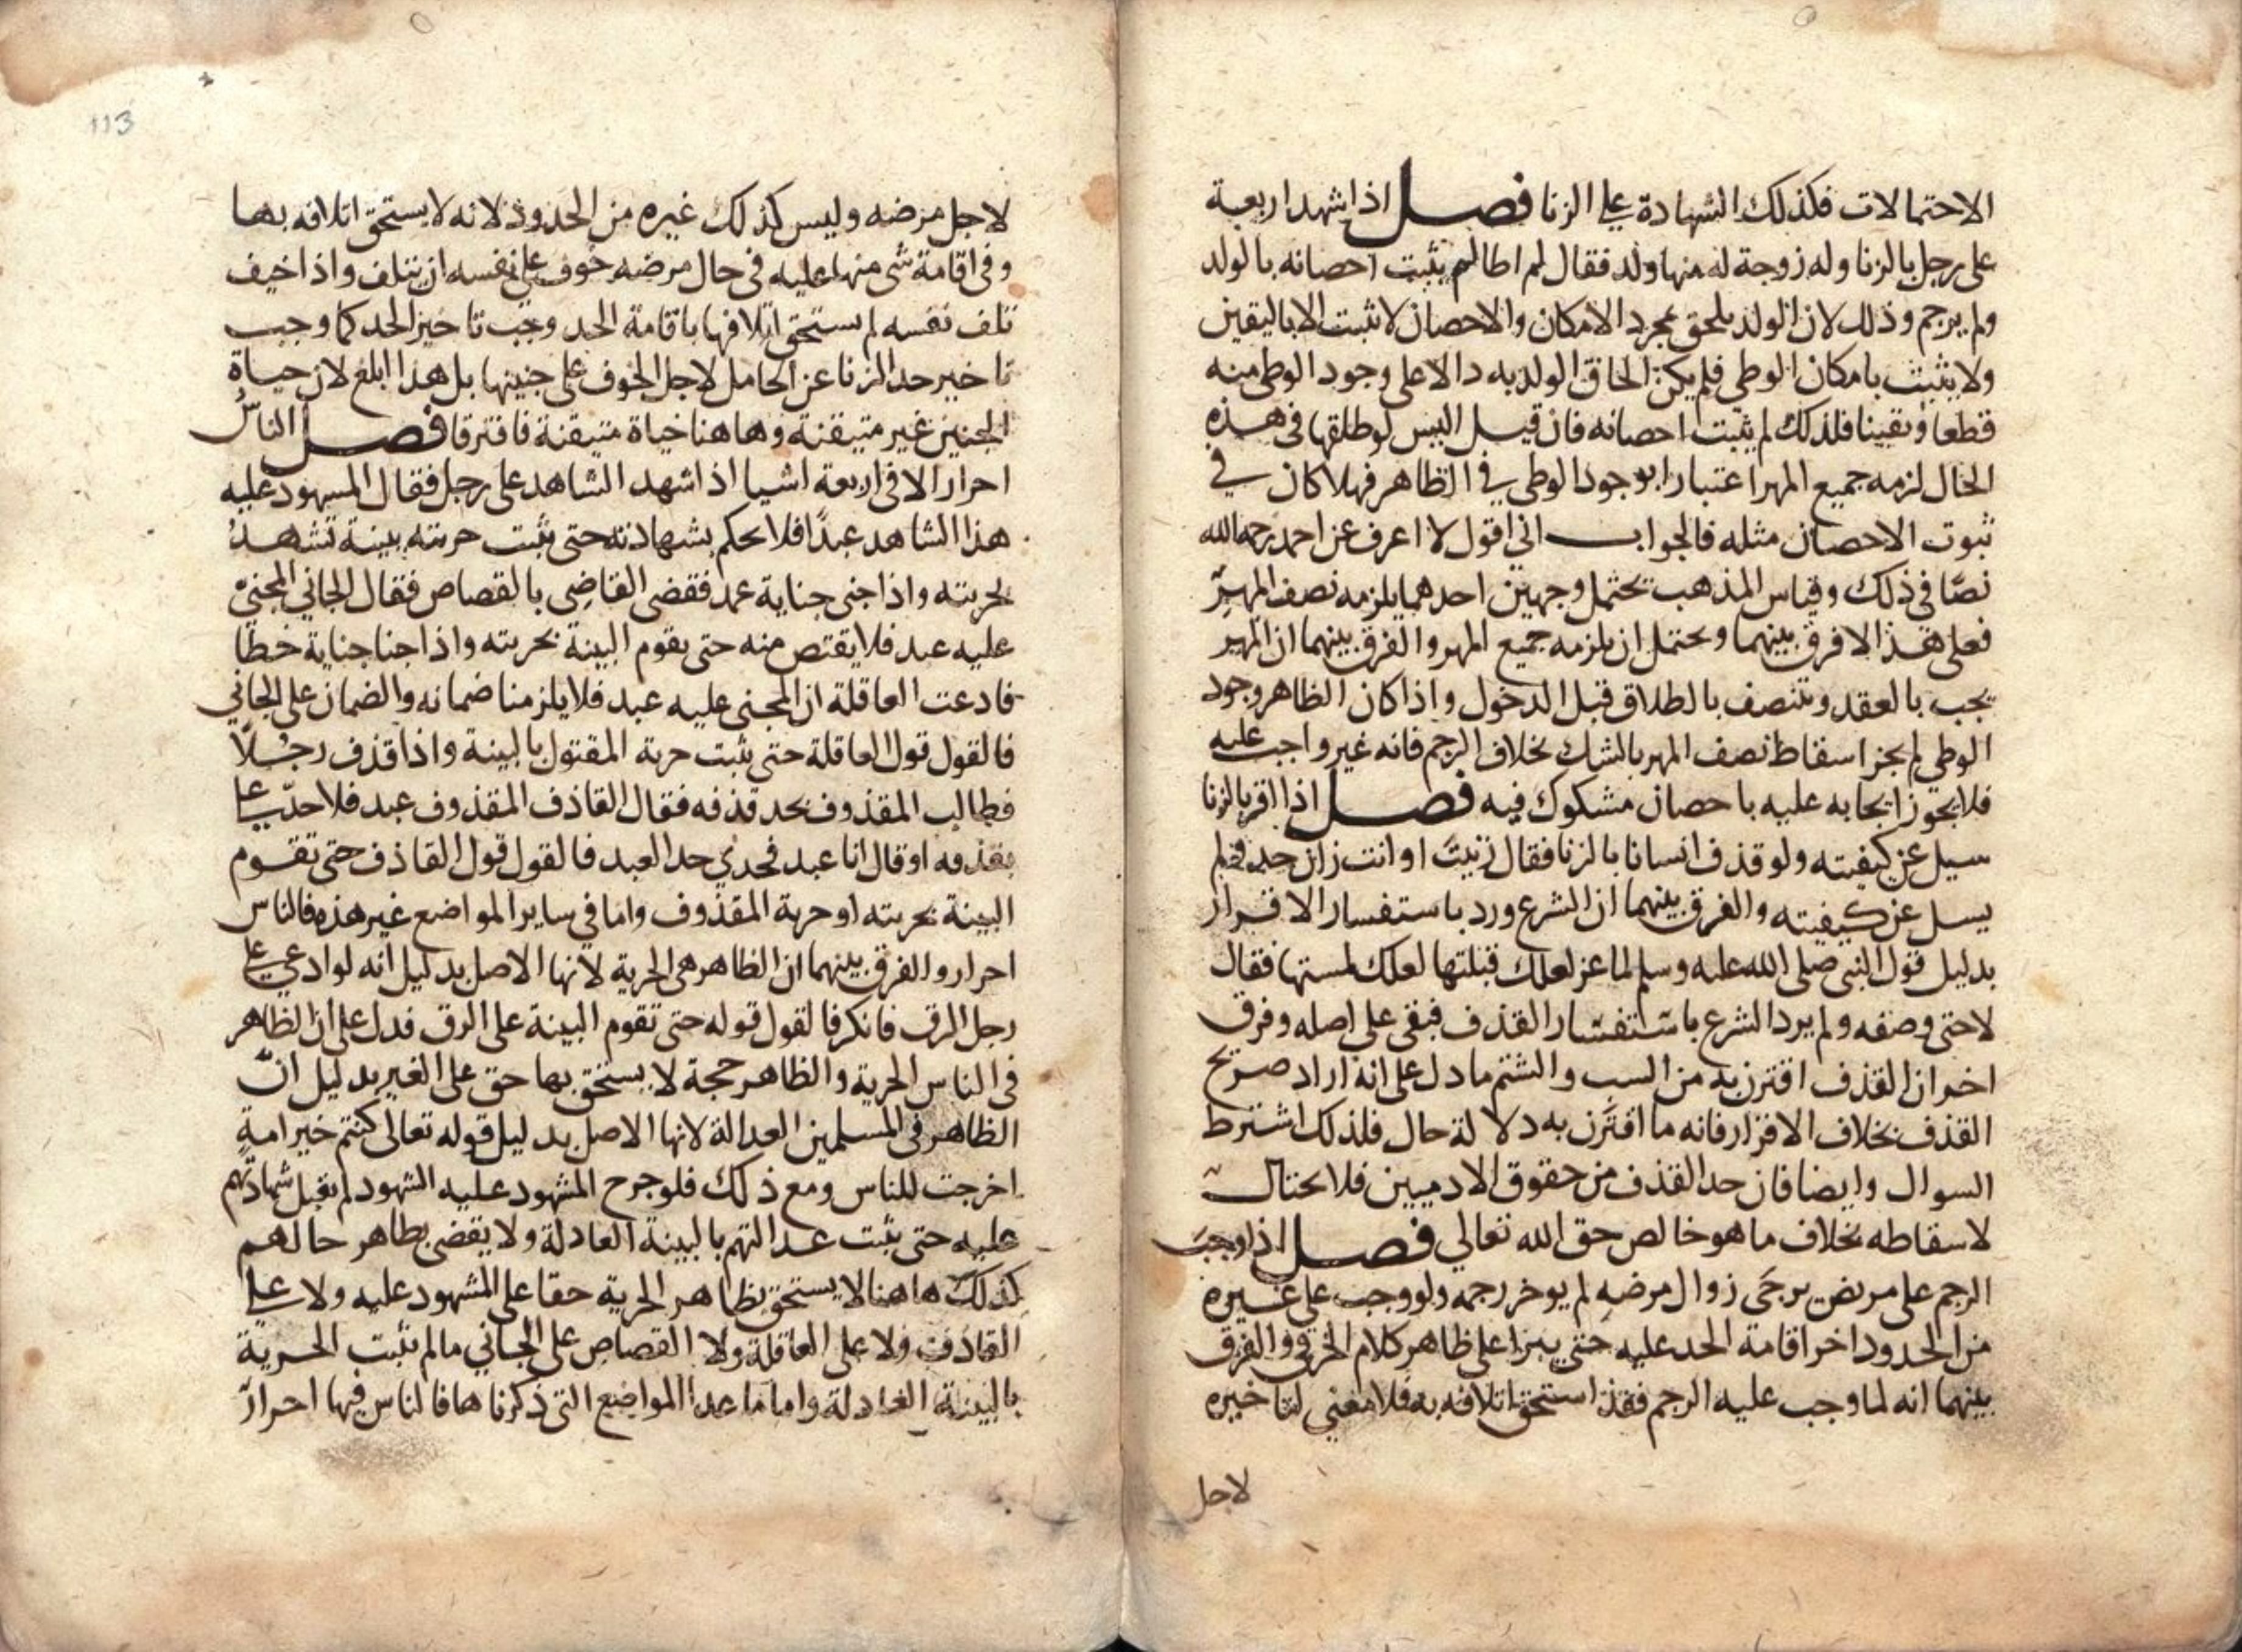 الاحتمالات فكذلك الشهادة على الزنا فصل اذا شهد اربعة
على رجل بالزنا وله زوجة له منها ولد فقال لم اطا لم يثبت احصانه بالولد
ولم يرجم وذلك لان الولد يلحق بمجرد الامكان والاحصان لا يثبت الا باليقين
ولا يثبت بامكان الوطي فلم يكن الحاق الولد به دالا على وجود الوطي منه
قطعا ويقينا فلذلك لم يثبت احصانه فان قيل اليس لو طلقها في هذه
الحال لزمه جميع المهر اعتبارا بوجود الوطي في الظاهر فهلا كان في
ثبوت الاحصان مثله فالجواب اني اقول لا اعرف عن احمد رحمه الله
نصا في ذلك وقياس المذهب يحتمل وجهين احدهما يلزمه نصف المهر
فعلى هذا لا فرق بينهما ويحتمل ان يلزمه جميع المهر والفرق بينهما ان المهر
يجب بالعقد ويتنصف بالطلاق قبل الدخول واذا كان الظاهر وجود
الوطي لم يجز اسقاط نصف المهر بالشك بخلاف الرجم فانه غير واجب عليه
فلا يجوز ايجابه عليه باحصان مشكوك فيه فصل اذا اقر بالزنا
سيل عن كيفيته ولو قذف انسانا بالزنا فقال زنيت او انت زان حد ولم
يسل عن كيفيته والفرق بينهما ان الشرع ورد باستفسار الاقرار
بدليل قول النبي صلى الله عليه وسلم لماعز لعلك قبلتها لعلك لمستها فقال
لا حتى وصفه ولم يرد الشرع باستفسار القذف فبقي على اصله وفرق
اخر ان القذف اقترن به من السب والشتم ما دل على انه اراد صريح
القذف بخلاف الاقرار فانه ما اقترن به دلالة حال فلذلك اشترط
السوال وايضا فان حد القذف من حقوق الادميين فلا يحتال
لاسقاطه بخلاف ما هو خالص حق الله تعالي فصل اذا وجب
الرجم على مريض يرجى زوال مرضه لم يوخر رجمه ولو وجب على غيره
من الحدود اخر اقامة الحد عليه حتى يبرا على ظاهر كلام الخرقي والفرق
بينهما انه لما وجب عليه الرجم فقد استحق اتلافه به فلا معنى لتاخيره
لاجل
113
لاجل مرضه وليس كذلك غيره من الحدود لانه لا يستحق اتلافه بها
وفي اقامة شي منها عليه في حال مرضه خوف على نفسه ان يتلف واذا خيف
تلف نفسه لم يستحق اتلافها باقامة الحد وجب تاخير الحد كما وجب
تاخير حد الزنا عن الحامل لاجل الخوف على جنينها بل هذا ابلغ لان حياة
الجنين غير متيقنة وهاهنا حياة متيقنة فافترقا فصل الناس
احرار الا في اربعة اشيا اذا شهد الشاهد على رجل فقال المشهود عليه
هذا الشاهد عبدا فلا يحكم بشهادته حتى يثبت حريته ببينة تشهد
بحريته واذا جنى جناية عمد فقضى القاضي بالقصاص فقال الجاني المجني
عليه عبد فلا يقتص منه حتى يقوم البينة بحريته واذا جنا جناية خطا
فادعت العاقلة ان المجني عليه عبد فلا يلزمنا ضمانه والضمان على الجاني
فالقول قول العاقلة حتى يثبت حرية المقتول بالبينة واذا قذف رجلا
فطالب المقذوف بحد قذفه فقال القاذف المقذوف عبد فلا حد علي
بقذفه او قال انا عبد فحدي حد العبد فالقول قول القاذف حتى تقوم
البينة بحريته او حرية المقذوف واما في ساير المواضع غير هذه فالناس
احرار والفرق بينهما ان الظاهر هى الحرية لانها الاصل بدليل انه لو ادعي على
رجل الرق فانكر فالقول قوله حتى تقوم البينة على الرق فدل على ان الظاهر
في الناس الحرية والظاهر حجة لا يستحق بها حق على الغير بدليل ان
الظاهر في المسلمين العدالة لانها الاصل بدليل قوله تعالى كنتم خير امة
اخرجت للناس ومع ذلك فلو جرح المشهود عليه الشهود لم يقبل شهادتهم
عليه حتى يثبت عدالتهم بالبينة العادلة ولا يقضى بظاهر حالهم
كذلك هاهنا لا يستحق بظاهر الحرية حقا على المشهود عليه ولا على
القاذف ولا على العاقلة ولا القصاص على الجاني ما لم تثبت الحرية
بالبينة العادلة واما ما عدا المواضع التي ذكرناها فالناس فيها احرار